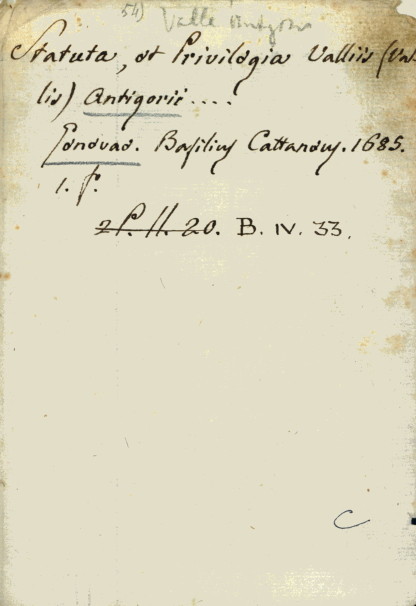 54) Valle Antigorio
Statuta, et Privilegia Valliis (Val-
lis) Antigorii ....
Genevae. Basilius Cattaneus. 1685.
1. f.
2 P. II. 20. B. IV. 33.
C